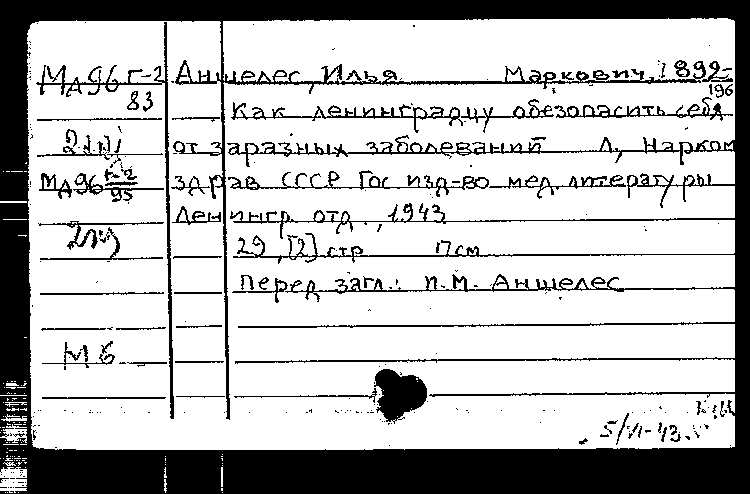 МА96 Г-2 Аншелес, Илья Маркович, 1892-
196
83 Как ленинградцу обезопасить себя
от заразных заболеваний Л., Нарком
МА96 Г-2/95 здрав СССР Гос изд-во мед. литературы
Ленингр. отд., 1943
29, [2] стр 17 см
Перед загл.: И.М. Аншелес
М б
5/VI-43.